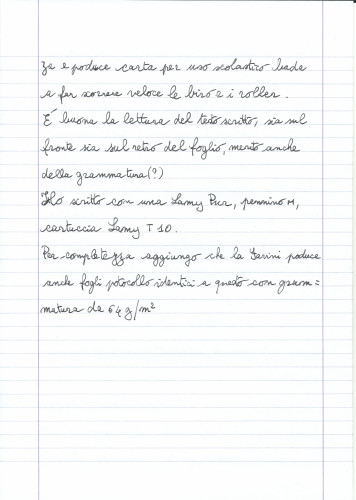 za e poduce carta per uso scolastico bada
a far scorrere veloce le biro e i roller.
É buona la lettura del testo scritto, sia sul
fronte sia sul retro del foglio, merito anche
della grammatura(?)
Ho scritto con una Lamy Pur, pennino M,
cartuccia Lamy T 10.
Per completezza aggiungo che la Favini poduce
anche fogli protocollo identici a questo con gram=
matura da 64 g/m²